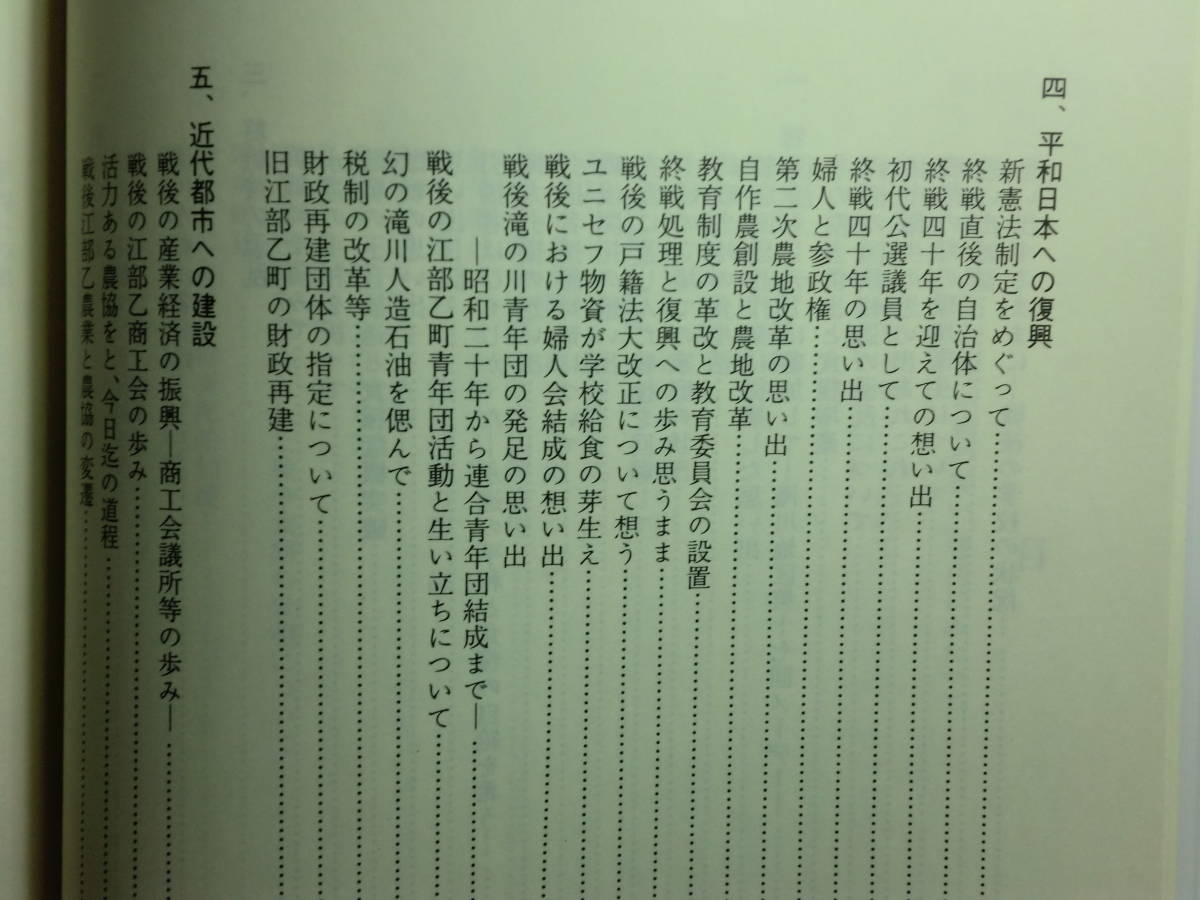 四、平和日本への復興
新憲法制定をめぐって
終戦直後の自治体について
終戦四十年を迎えての想い出
初代公選議員として
終戦四十年の思い出
婦人と参政権
第二次農地改革の思い出
自作農創設と農地改革
教育制度の革改と教育委員会の設置
終戦処理と復興への歩み思うまま
戦後の戸籍法大改正について想う
ユニセフ物資が学校給食の芽生え
戦後における婦人会結成の想い出
戦後滝の川青年団の発足の思い出
―昭和二十年から連合青年団結成まで―
戦後の江部乙町青年団活動と生い立ちについて
幻の滝川人造石油を偲んで
税制の改革等
財政再建団体の指定について
旧江部乙町の財政再建
五、近代都市への建設
戦後の産業経済の振興―商工会議所等の歩み―
戦後の江部乙商工会の歩み
活力ある農協をと、今日迄の道程
戦後江部乙農業と農協の変遷